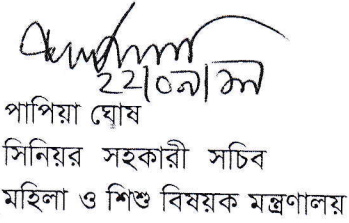 পাপিয়া ঘোষ
সিনিয়র সহকারী সচিব
মহিলা ও শিশু বিষয়ক মন্ত্রণালয়